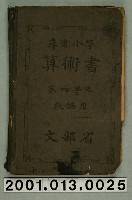 尋常小學
算術書
第四學年
教師用
文部省
2001.013.0025